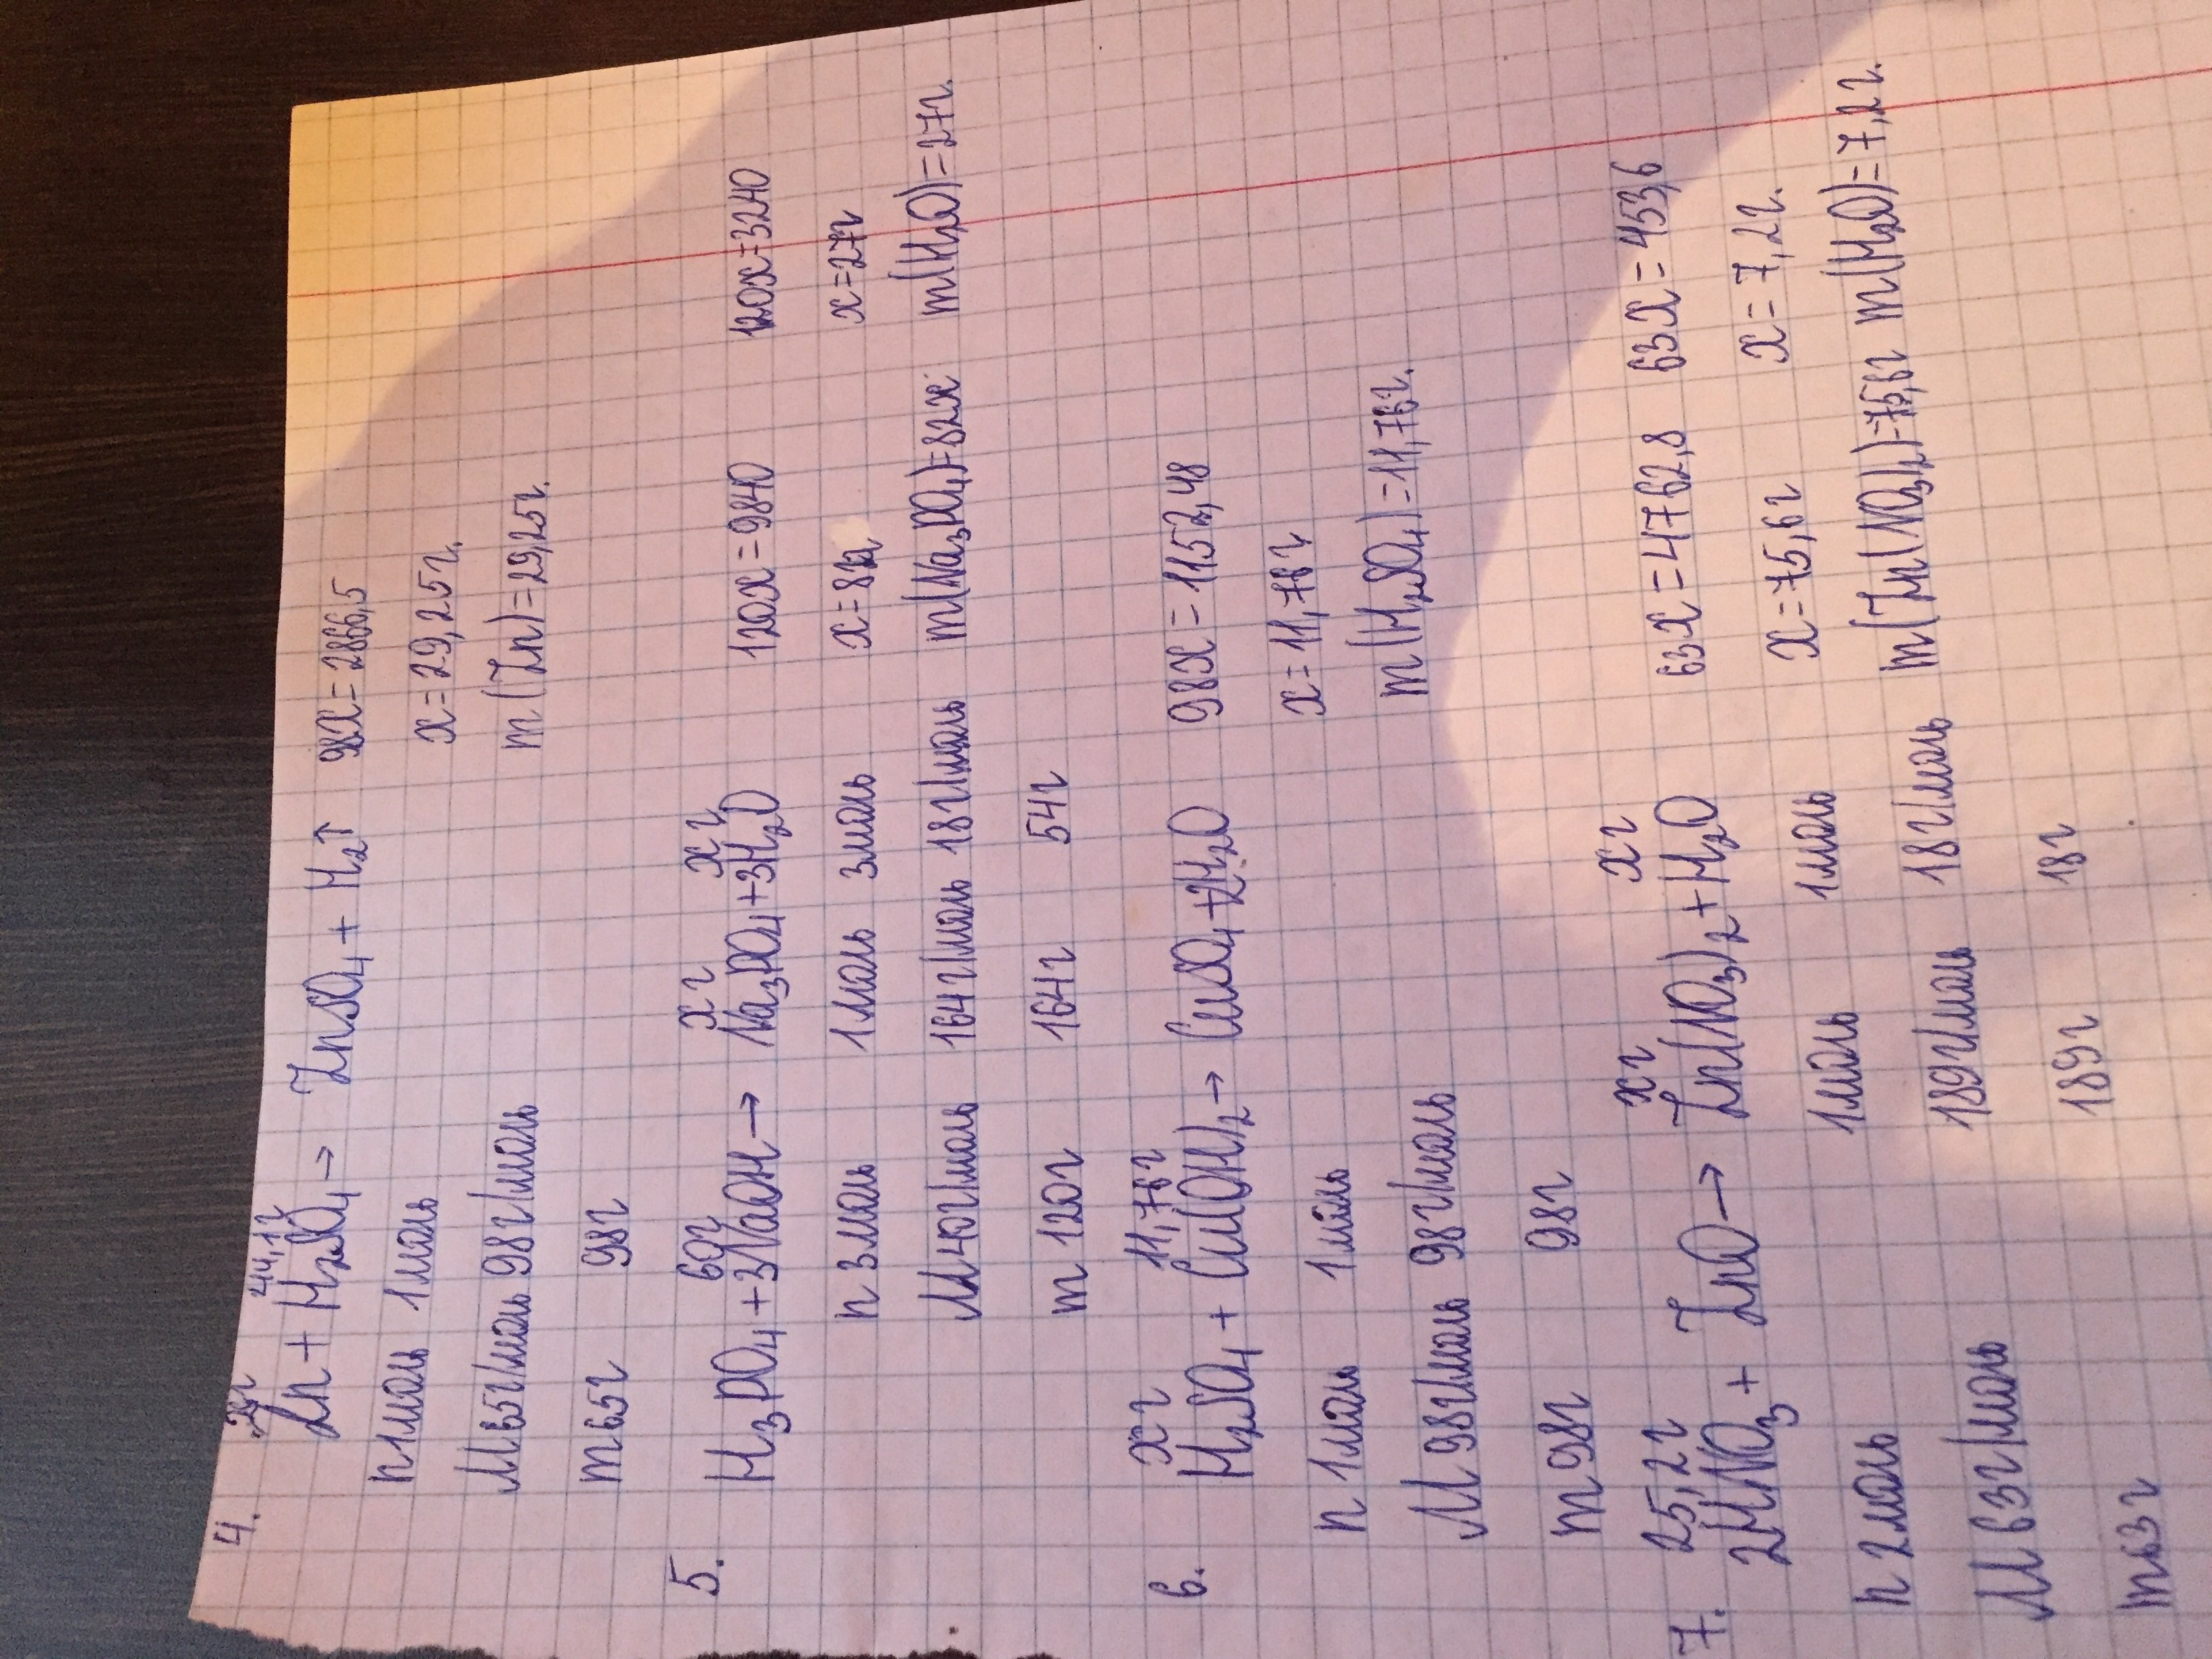 4.
xг 44,1г
Zn + H₂SO₄ → ZnSO₄ + H₂↑ 98x = 2866,5
n 1моль 1моль x = 29,25г.
M 65г/моль 98г/моль m(Zn) = 29,25г.
m 65г 98г
5.
60г xг xг
H₃PO₄ + 3NaOH → Na₃PO₄ + 3H₂O 120x = 9840 120x = 3240
n 3моль 1моль 3моль x = 82г x = 27г
M 40г/моль 164г/моль 18г/моль m(Na₃PO₄) = 82г. m(H₂O) = 27г.
m 120г 164г 54г
6.
xг 11,76г
H₂SO₄ + Cu(OH)₂ → CuSO₄ + 2H₂O 98x = 1152,48
n 1моль 1моль x = 11,76г
M 98г/моль 98г/моль m(H₂SO₄) = 11,76г.
m 98г 98г
7.
25,2г xг xг
2HNO₃ + ZnO → Zn(NO₃)₂ + H₂O 63x = 4762,8 63x = 453,6
n 2моль 1моль 1моль x = 75,6г x = 7,2г.
M 63г/моль 189г/моль 18г/моль m(Zn(NO₃)₂) = 75,6г m(H₂O) = 7,2г.
m 63г 189г 18г